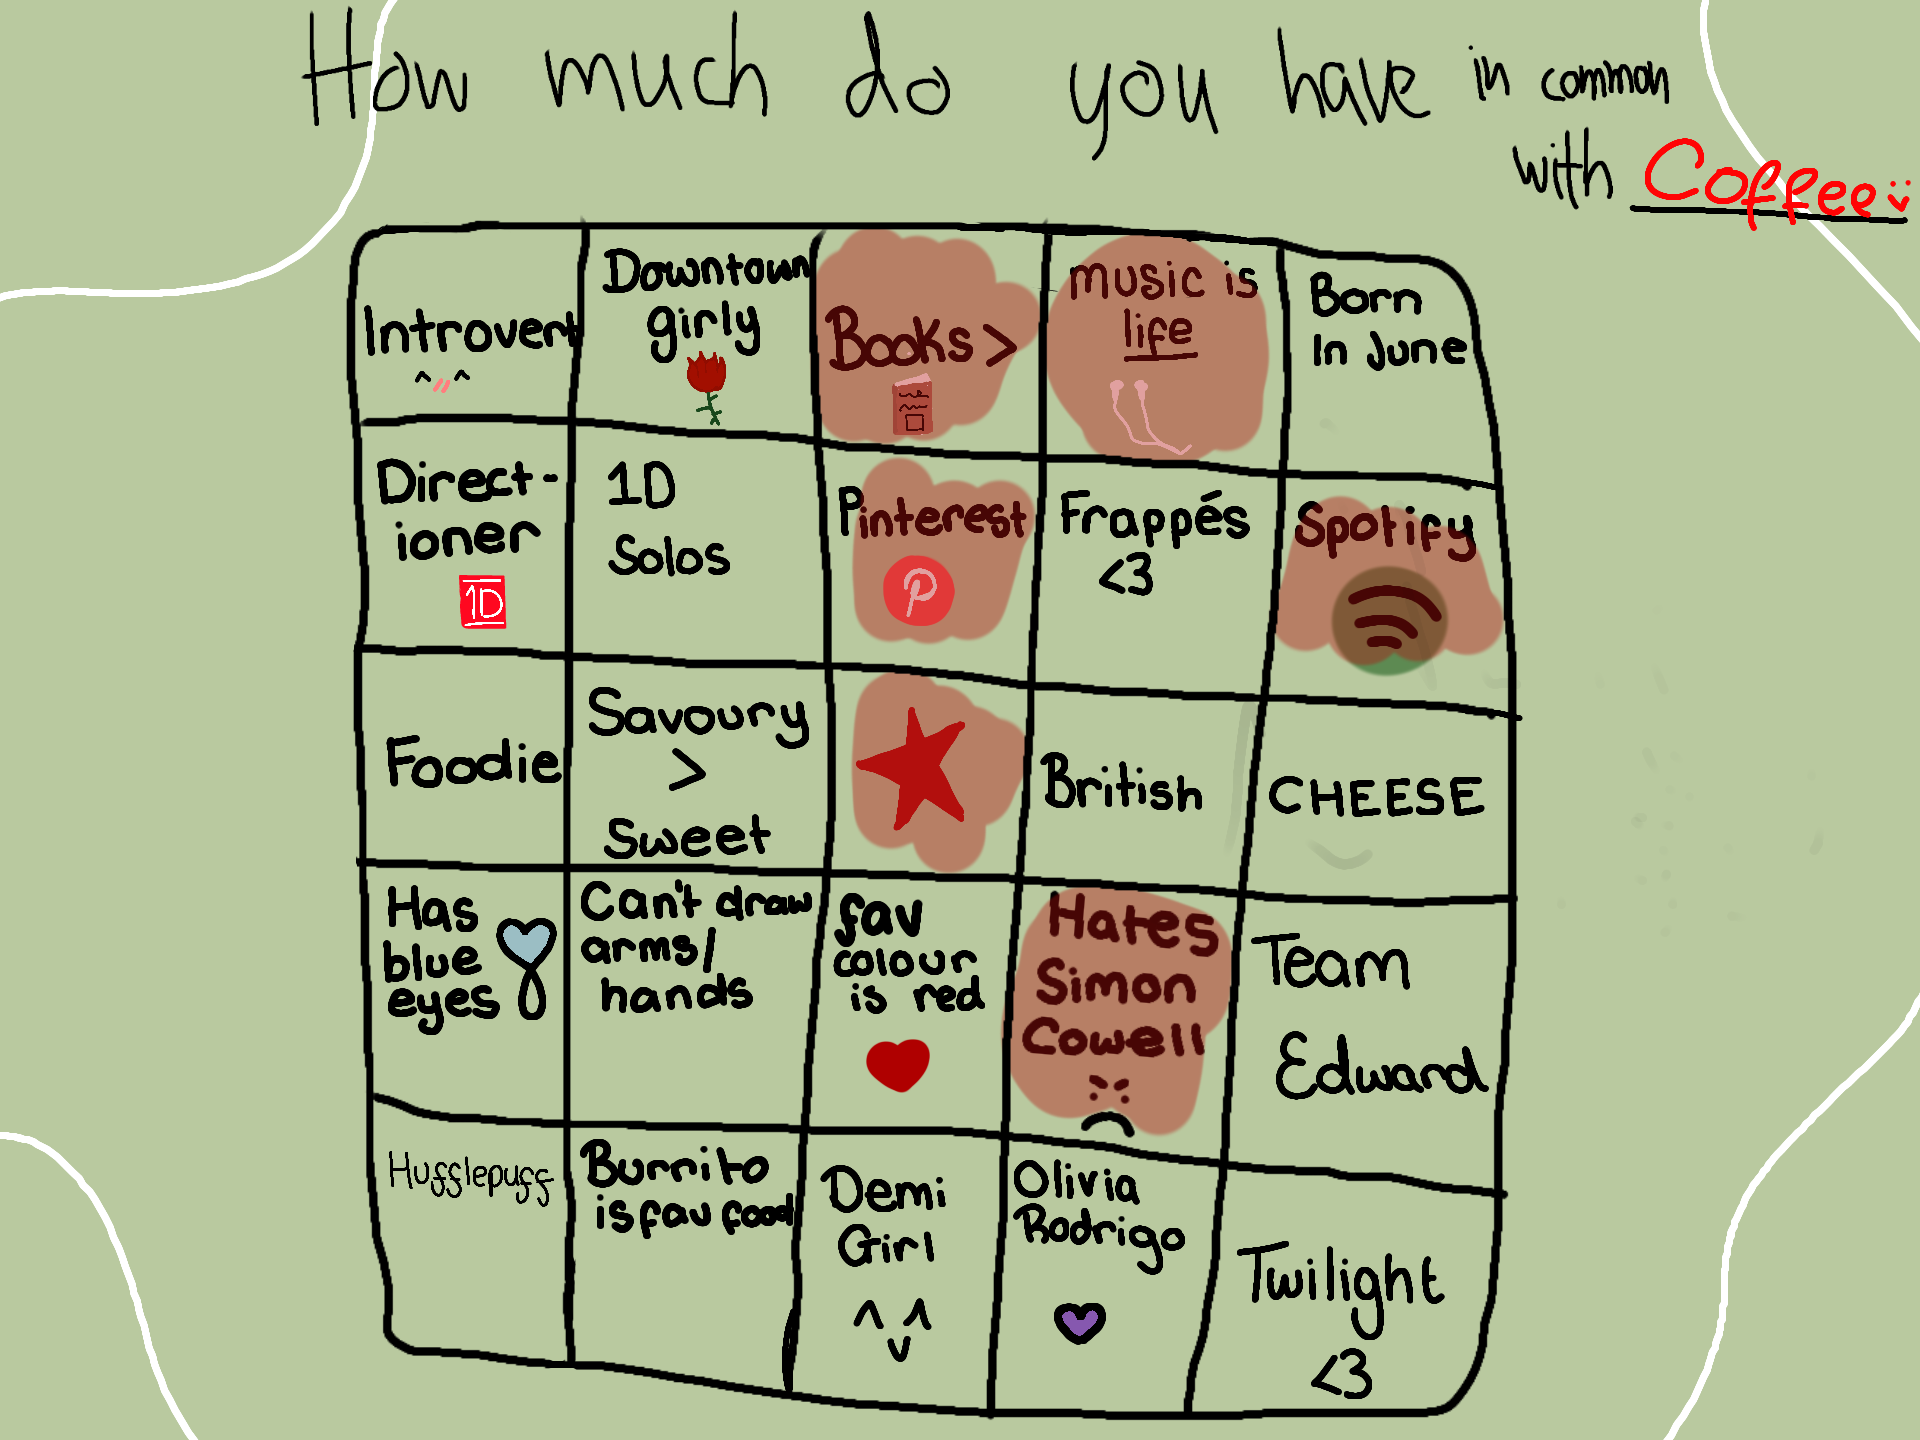 How much do you have in common
with Coffee :)
Introvert
^ // ^
Downtown
girly
Books >
music is
life
Born
In June
Direct-
ioner
1D
1D
Solos
Pinterest
P
Frappés
<3
Spotify
Foodie
Savoury
>
Sweet
British
CHEESE
Has
blue
eyes
Can't draw
arms/
hands
fav
colour
is red
Hates
Simon
Cowell
Team
Edward
Hufflepuff
Burrito
is fav food
Demi
Girl
^ v ^
Olivia
Rodrigo
Twilight
<3